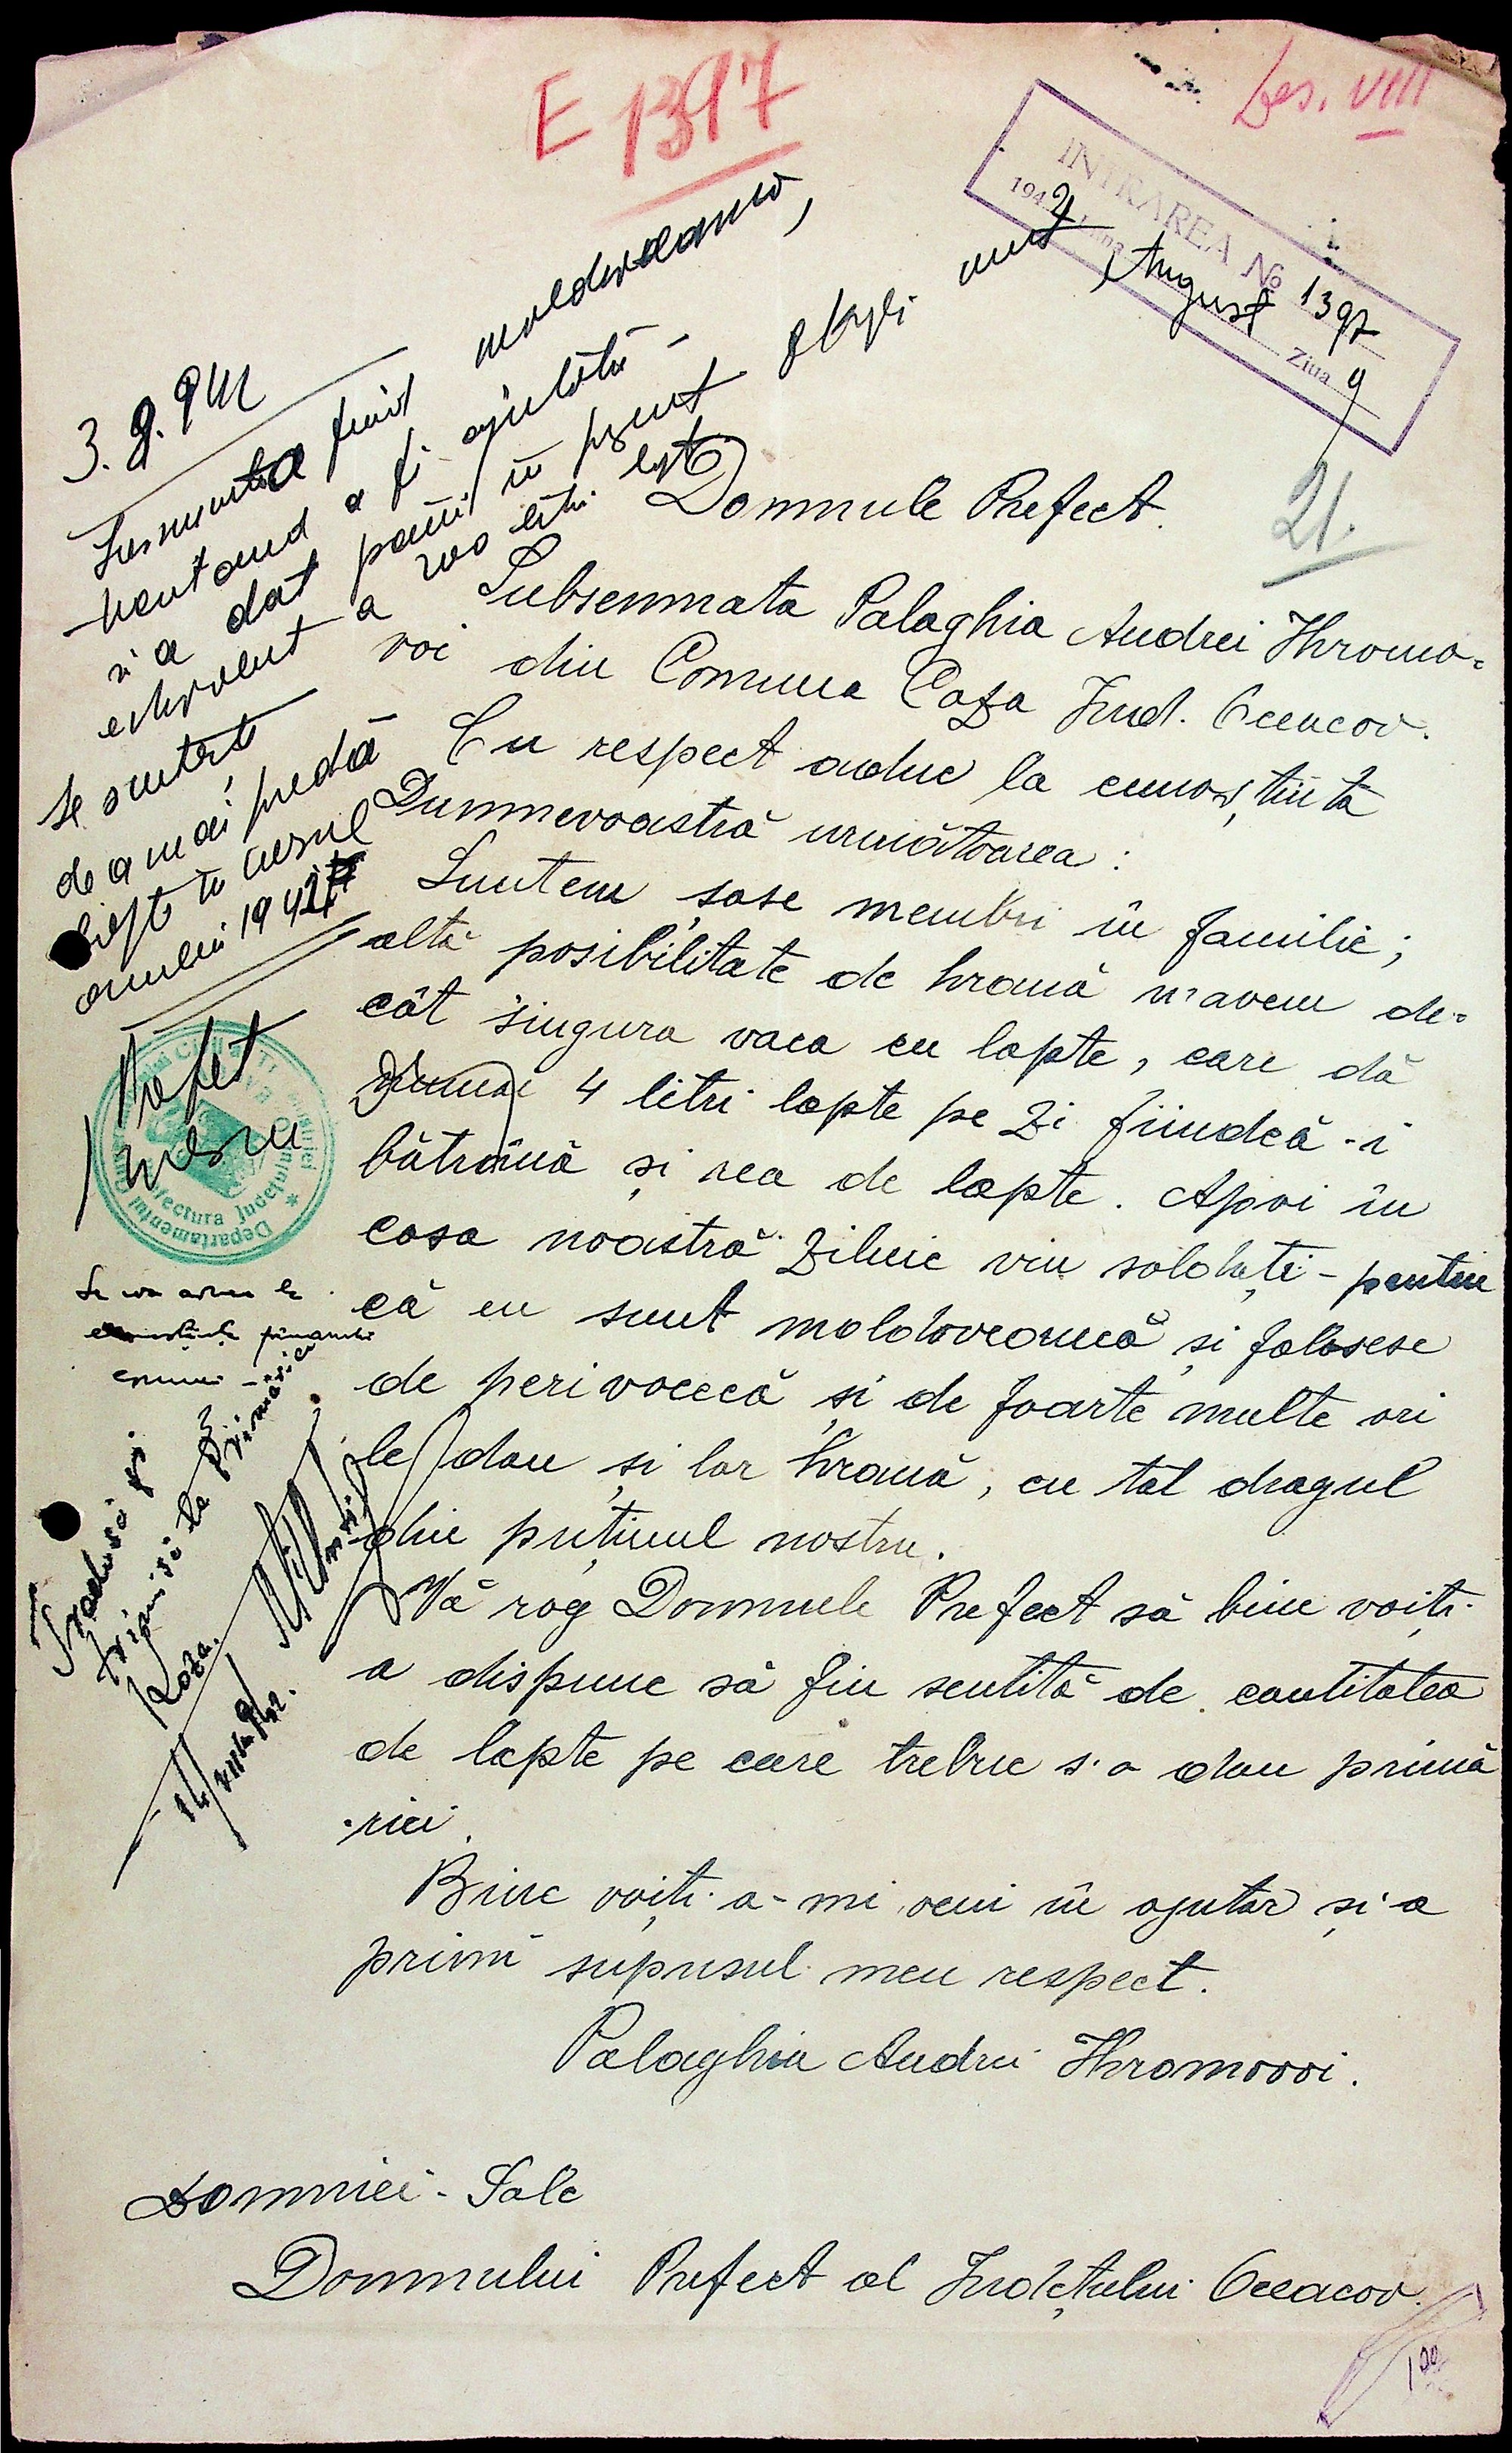 E 1397
Des. VIII
INTRAREA № 1397
1942 Luna August Ziua 9
21.
3.8.942
fiind moldoveancă,
a fi ajutată
și a dat până în prezent
echivalent a 200 litri lapte
Se scutește
de a mai preda
lapte în cursul
anului 1942
Prefet
Departamentul Prefectura Județului
Se va aduce la
cunoștința primarului
comunei
Tradusă și
trimisă la Primăria
Koza.
Domnule Prefect.
Subsemnata Palaghia Andrei Hromo-
voi din Comuna Coza Jud. Oceacov.
Cu respect aduc la cunoștiița
Dumnevoastră următoarea:
Suntem șase membri în familie;
altă posibilitate de hrană n'avem de-
cât singura vaca cu lapte, care dă
numai 4 litri lapte pe zi fiindcă-i
bătrână și rea de lapte. Apoi în
casa noastră zilnic vin soldați - pentru
că eu sunt moldoveancă și folosesc
de perivocecă și de foarte multe ori
le dau și lor hrană, cu tot dragul
din puținul nostru.
Vă rog Domnule Prefect să bine voiți
a dispune să fiu scutită de cantitatea
de lapte pe care trebue s'o dau primă
-riei.
Bine voiți a-mi veni în ajutor și a
primi supusul meu respect.
Palaghia Andrei Hromovoi.
Domniei-Sale
Domnului Prefect al Județului Oceacov.